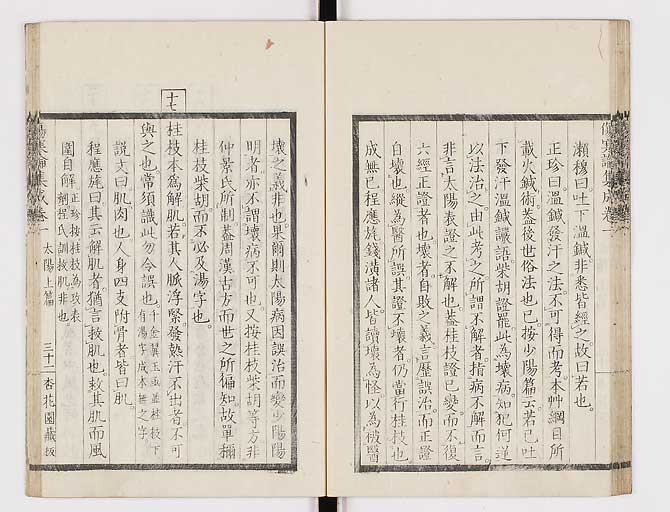 瀨穆曰吐下溫鍼非悉皆經之故曰若也
正珍曰溫鍼發汗之法不可得而考本艸綱目所
載火鍼術蓋後世俗法也已按少陽篇云若已吐
下發汗溫鍼讝語柴胡證罷此為壞病知犯何逆
以法治之由此考之所謂不解者指病不解而言
非言太陽表證之不解也蓋桂枝證已變而不復
六經正證者也壞者自敗之義言歷誤治而正證
自壞也縱為醫所誤其證不壞者仍當行桂枝也
成無已程應旄錢潢諸人皆讀壞為怪以為被醫
傷寒論集成卷一
壞之義非也果爾則太陽病因誤治而變少陽陽
明者亦不謂壞病不可也又按桂枝柴胡等方非
仲景氏所制蓋周漢古方而世之所徧知故單稱
桂枝柴胡而不必及湯字也
十七
桂枝本為解肌若其人脈浮緊發熱汗不出者不可
與之也常須識此勿令誤也
千金翼玉函並桂枝下
有湯字成本無之字
說文曰肌肉也人身四支附骨者皆曰肌
程應旄曰其云解肌者猶言救肌也救其肌而風
圍自解
正珍按桂枝為攻表
劑程氏訓救肌非也
傷寒論集成卷一
太陽上篇
三十二
杏花園藏板